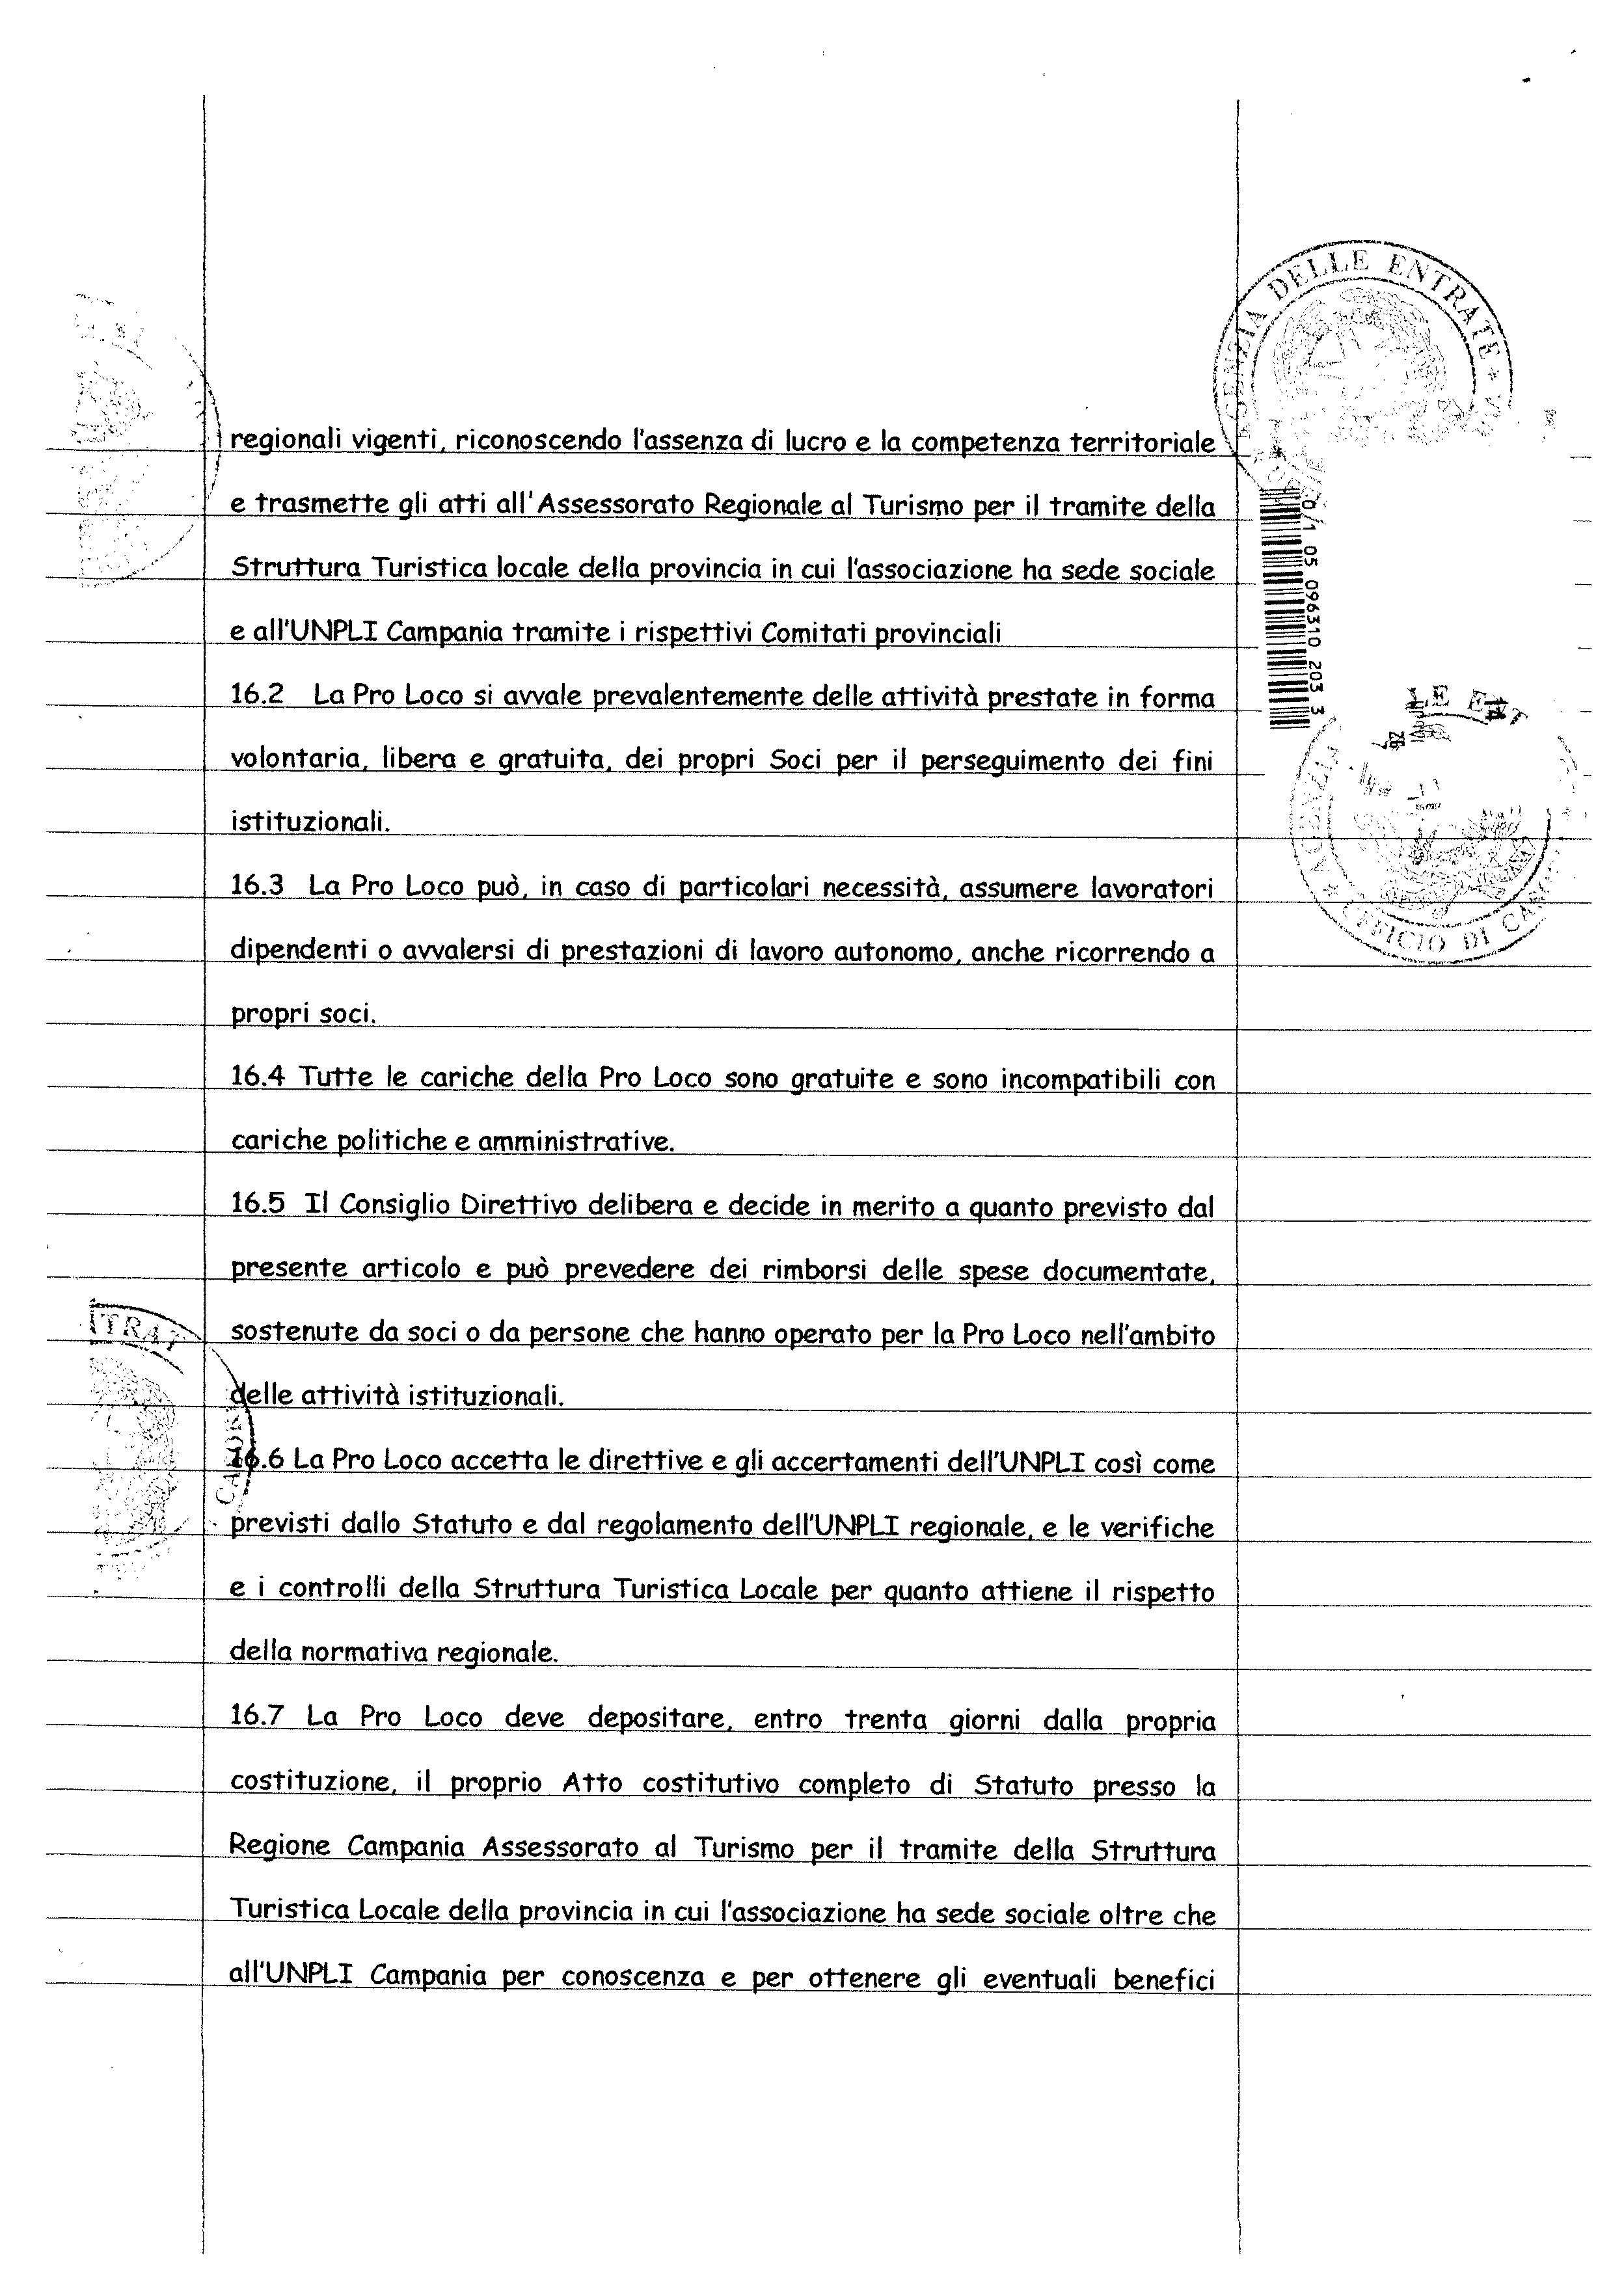 regionali vigenti, riconoscendo l'assenza di lucro e la competenza territoriale
e trasmette gli atti all'Assessorato Regionale al Turismo per il tramite della
Struttura Turistica locale della provincia in cui l'associazione ha sede sociale
e all'UNPLI Campania tramite i rispettivi Comitati provinciali
16.2 La Pro Loco si avvale prevalentemente delle attività prestate in forma
volontaria, libera e gratuita, dei propri Soci per il perseguimento dei fini
istituzionali.
16.3 La Pro Loco può, in caso di particolari necessità, assumere lavoratori
dipendenti o avvalersi di prestazioni di lavoro autonomo, anche ricorrendo a
propri soci.
16.4 Tutte le cariche della Pro Loco sono gratuite e sono incompatibili con
cariche politiche e amministrative.
16.5 Il Consiglio Direttivo delibera e decide in merito a quanto previsto dal
presente articolo e può prevedere dei rimborsi delle spese documentate,
sostenute da soci o da persone che hanno operato per la Pro Loco nell'ambito
delle attività istituzionali.
16.6 La Pro Loco accetta le direttive e gli accertamenti dell'UNPLI così come
previsti dallo Statuto e dal regolamento dell'UNPLI regionale, e le verifiche
e i controlli della Struttura Turistica Locale per quanto attiene il rispetto
della normativa regionale.
16.7 La Pro Loco deve depositare, entro trenta giorni dalla propria
costituzione, il proprio Atto costitutivo completo di Statuto presso la
Regione Campania Assessorato al Turismo per il tramite della Struttura
Turistica Locale della provincia in cui l'associazione ha sede sociale oltre che
all'UNPLI Campania per conoscenza e per ottenere gli eventuali benefici
GENZIA DELLE ENTRATE
0/1 05 096310 203 3
LE ENT
AGENZIA
UFFICIO DI
NTRAT